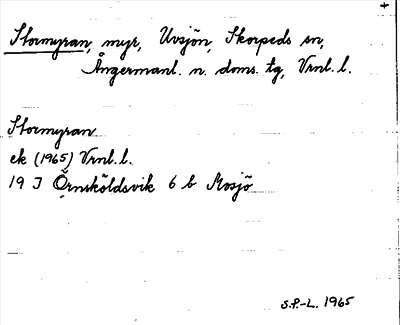 Stormyran, myr, Uvsjön, Skorpeds sn,
Ångermanl. n. doms. tg, Vrnl. l.
Stormyran
ek (1965) Vrnl. l.
19 J Örnsköldsvik 6 b Mosjö
S.P.-L. 1965